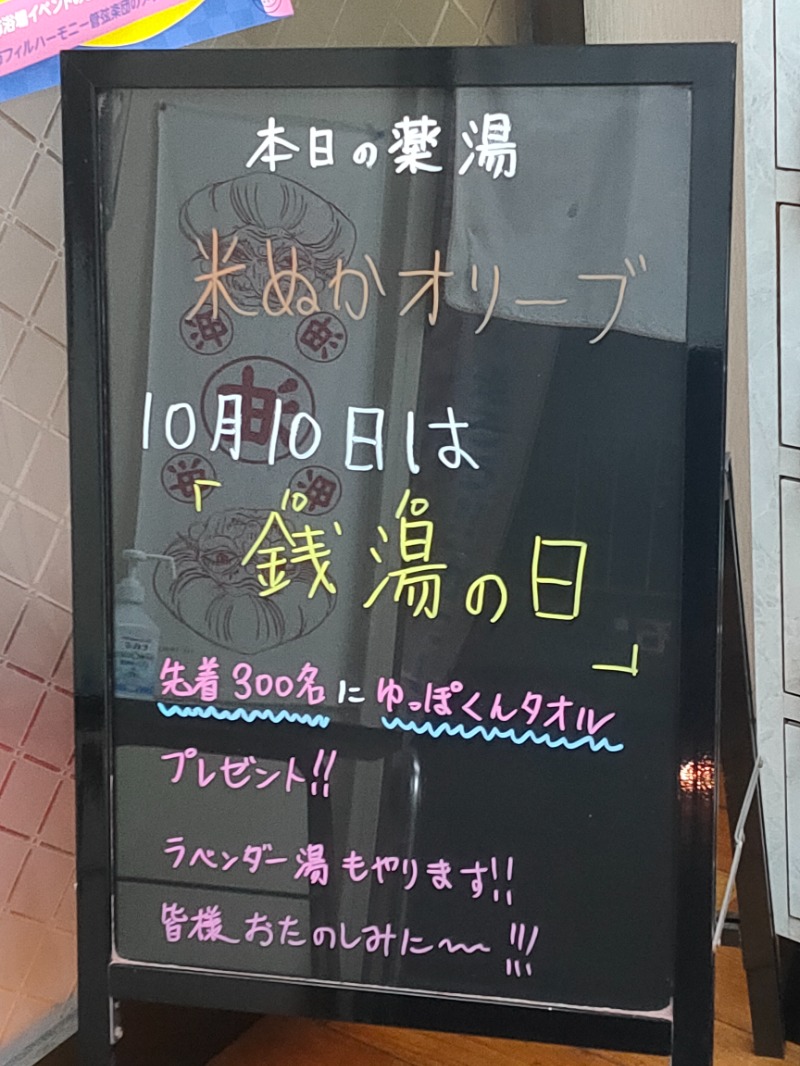 浴場イベント
フィルハーモニー管弦楽団の
本日の薬湯
米ぬかオリーブ
10月10日は
「銭湯の日」
10 10
先着300名にゆっぽくんタオル
プレゼント!!
ラベンダー湯もやります!!
皆様おたのしみに〜〜!!!